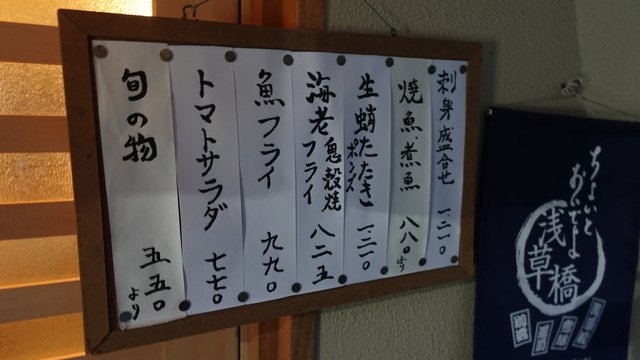 刺身盛合せ 一二一〇
焼魚煮魚 八八〇より
生蛸たたきポンズ 一二一〇
海老フライ 鬼殻焼 八二五
魚フライ 九九〇
トマトサラダ 七七〇
旬の物 五五〇より
ちょいと
おいでよ
浅草橋